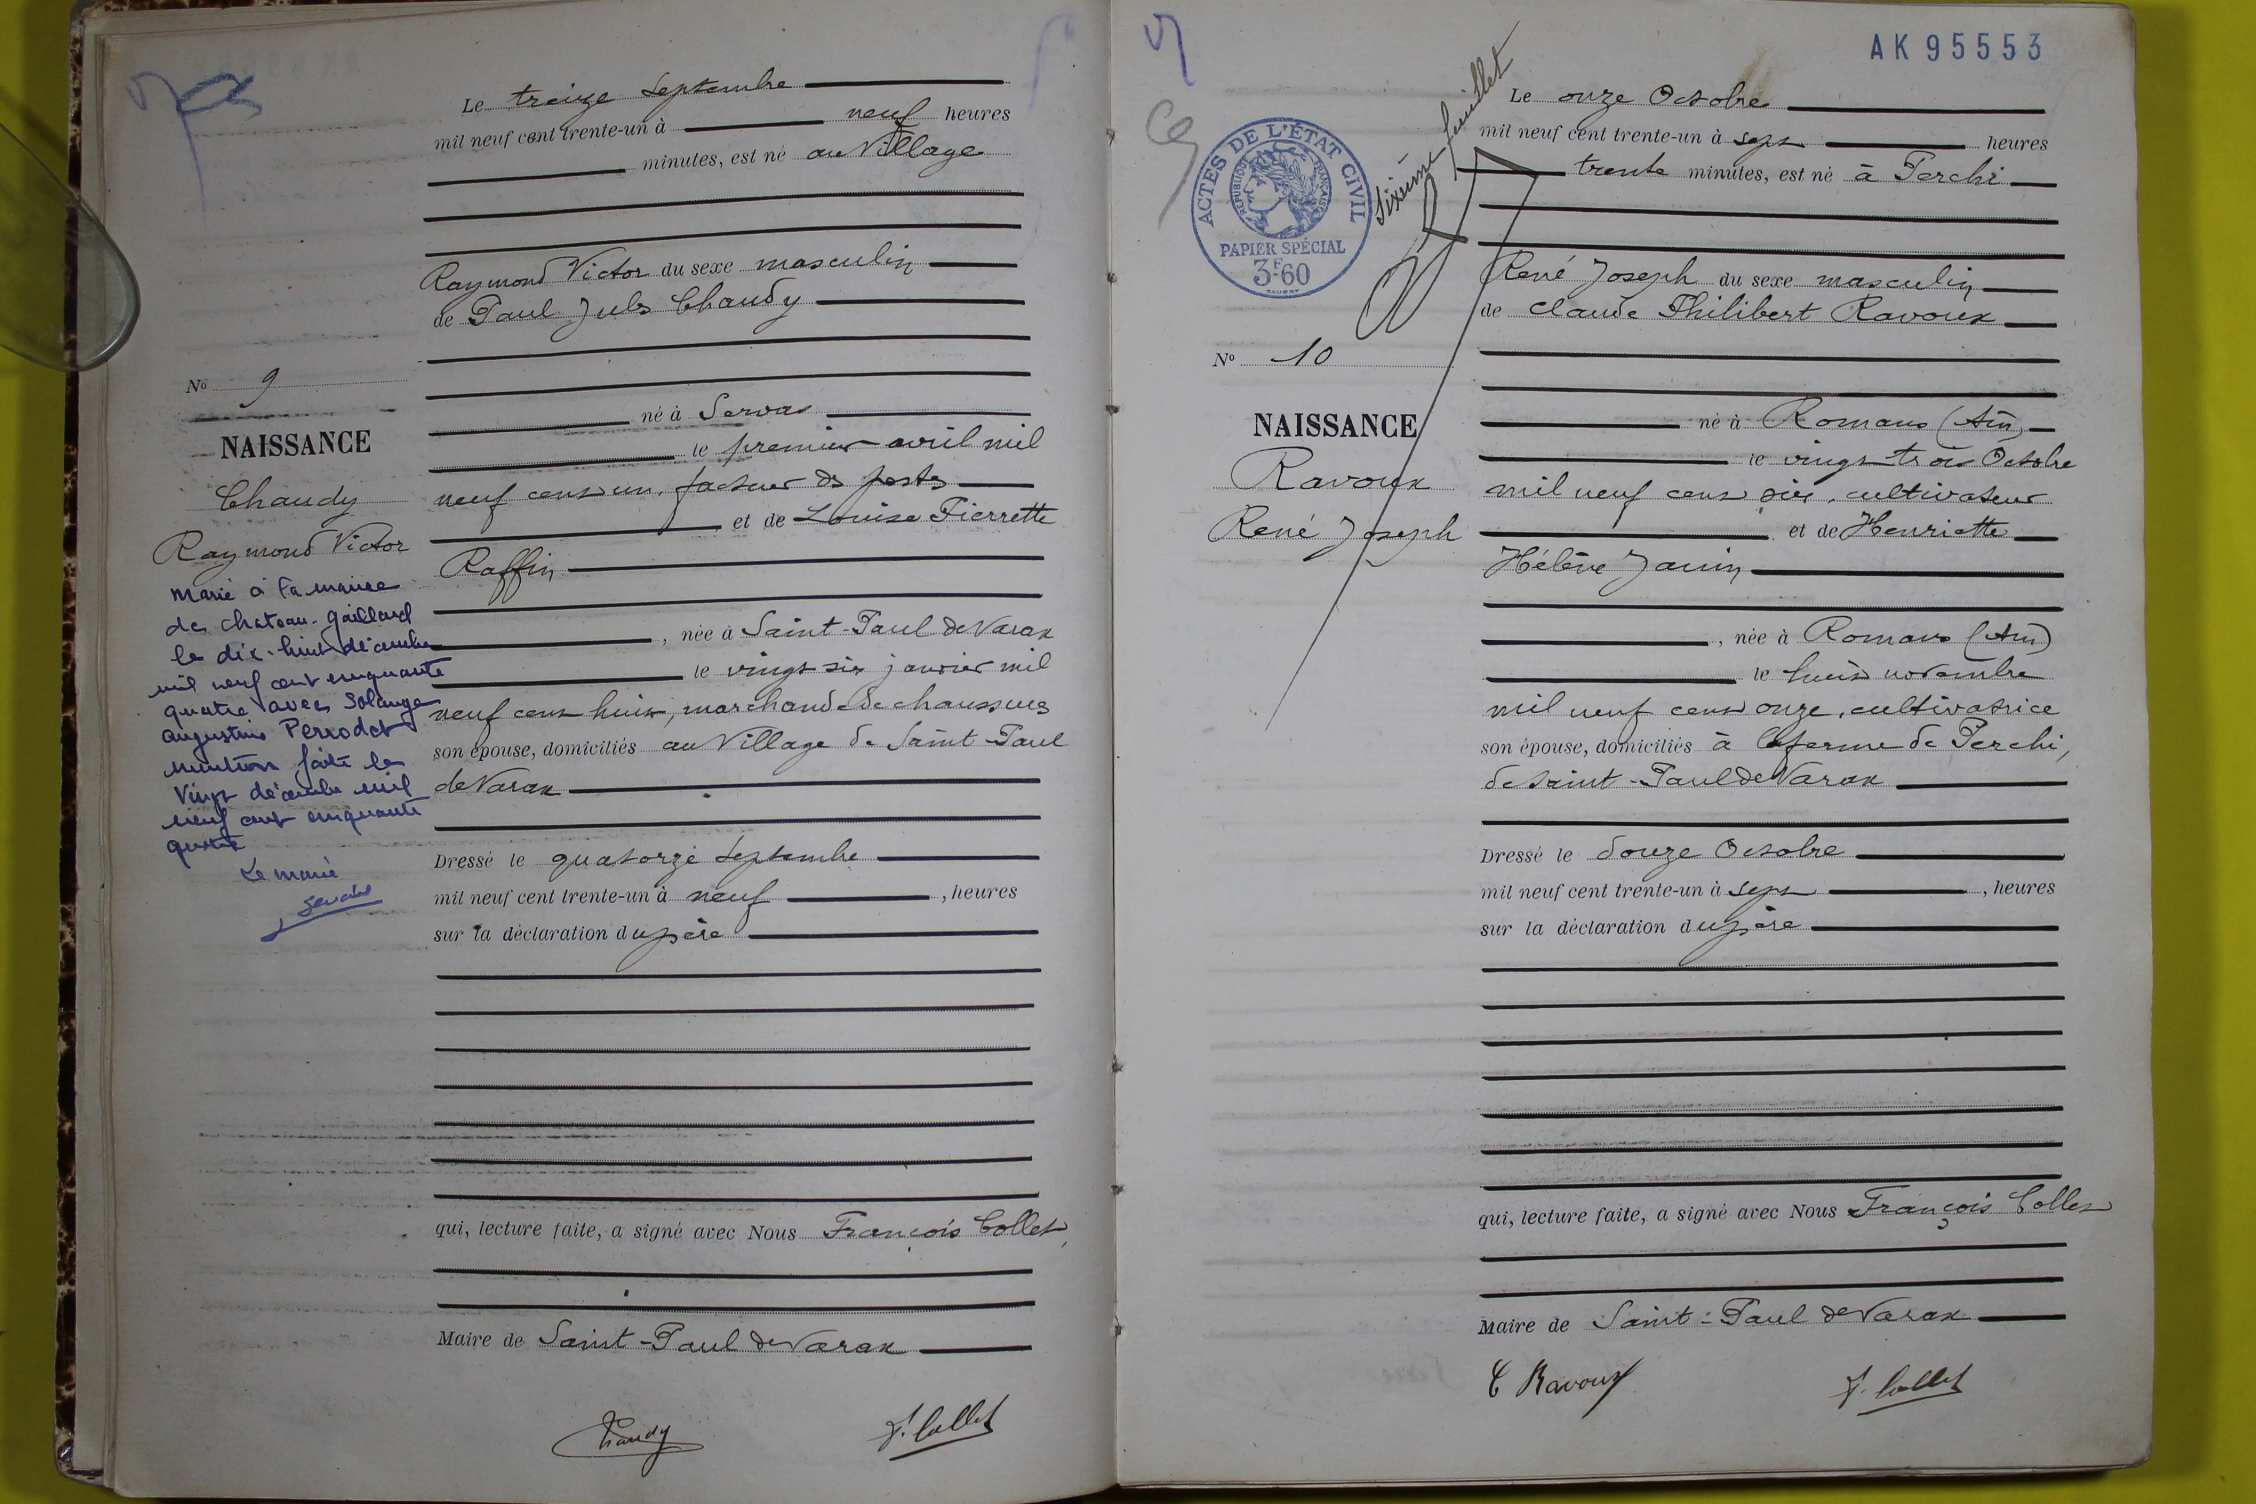 Le treize Septembre
mil neuf cent trente-un à neuf heures
minutes, est né au Village
Raymond Victor du sexe masculin
de Paul Jules Chaudy
No 9
né à Servas
NAISSANCE
le premier avril mil
Chaudy
neuf cent un, facteur des postes
et de Louise Pierrette
Raymond Victor
Raffin
marié à la mairie
de chateau-gaillard
le dix-huit décembre
mil neuf cent cinquante
quatre avec Solange
augustine Perrodet
mention faite le
vingt décembre mil
neuf cent cinquante
quatre
Le maire
, née à Saint-Paul de Varax
le vingt six janvier mil
neuf cent huit, marchande de chaussures
son épouse, domiciliés au Village de Saint-Paul
de Varax
Dressé le quatorze Septembre
mil neuf cent trente-un à neuf , heures
sur la déclaration du père
qui, lecture faite, a signé avec Nous François Collet,
Maire de Saint-Paul de Varax
Chaudy F. Collet
AK 95553
Sixième feuillet
ACTES DE L'ÉTAT CIVIL
RÉPUBLIQUE FRANÇAISE
PAPIER SPÉCIAL
3F60
Le onze Octobre
mil neuf cent trente-un à sept heures
trente minutes, est né à Perchi
René Joseph du sexe masculin
de Claude Philibert Ravoux
No 10
né à Romans (Ain)
NAISSANCE
le vingt trois Octobre
Ravoux
mil neuf cent six, cultivateur
René Joseph
et de Henriette
Hélène Janin
, née à Romans (Ain)
le huit novembre
mil neuf cent onze, cultivatrice
son épouse, domiciliés à la ferme de Perchi,
de Saint-Paul de Varax
Dressé le douze Octobre
mil neuf cent trente-un à sept , heures
sur la déclaration du père
qui, lecture faite, a signé avec Nous François Collet
Maire de Saint-Paul de Varax
C Ravoux F. Collet